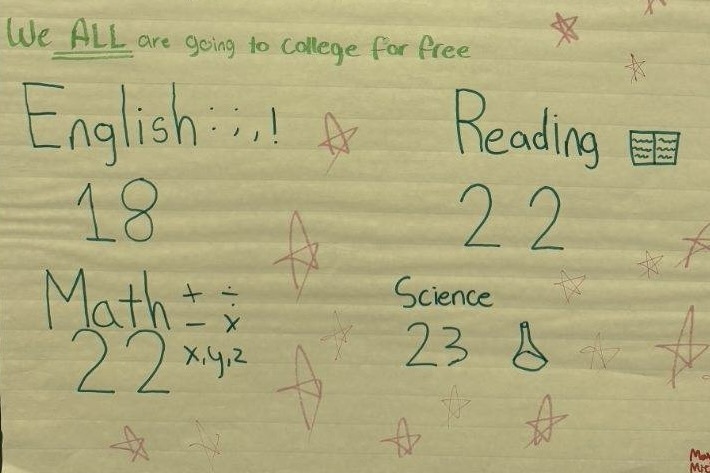 We ALL are going to college for free
English : ; , !
Reading
18
22
Math + ÷
- x
Science
22 x,y,z
23